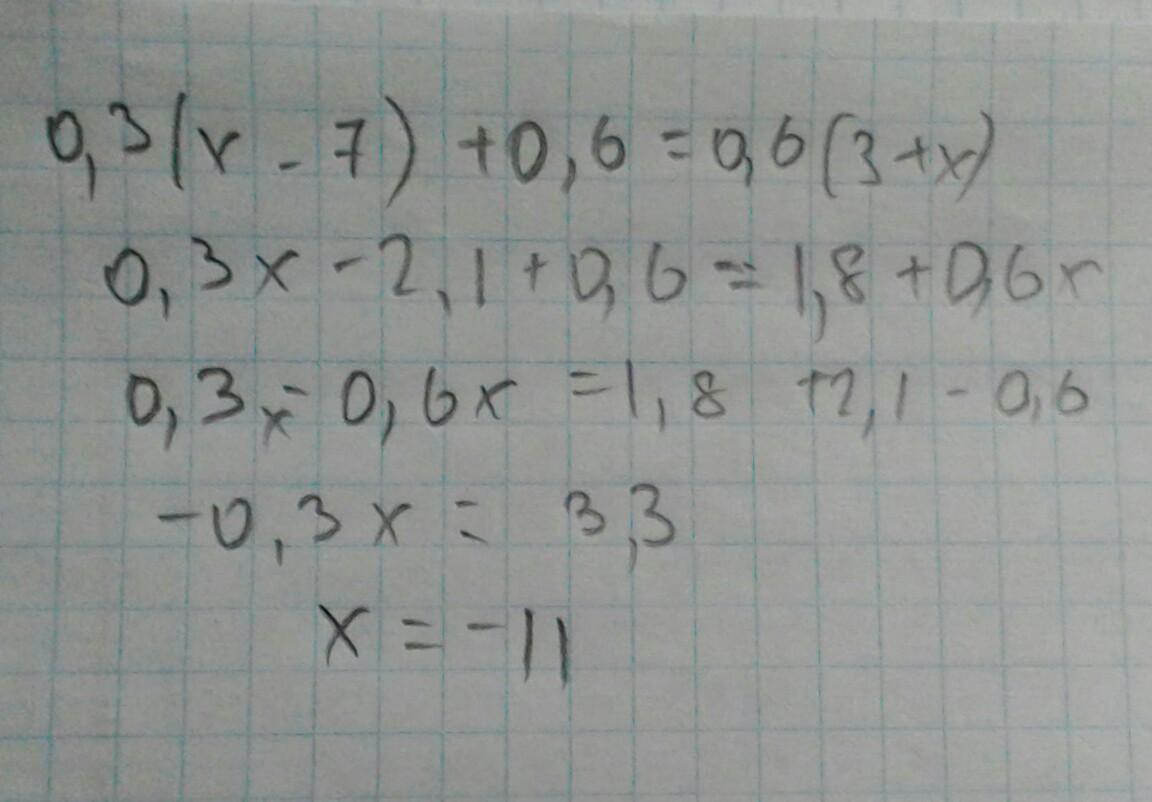 0,3(x - 7) + 0,6 = 0,6(3 + x)
0,3x - 2,1 + 0,6 = 1,8 + 0,6x
0,3x - 0,6x = 1,8 + 2,1 - 0,6
-0,3x = 3,3
x = -11